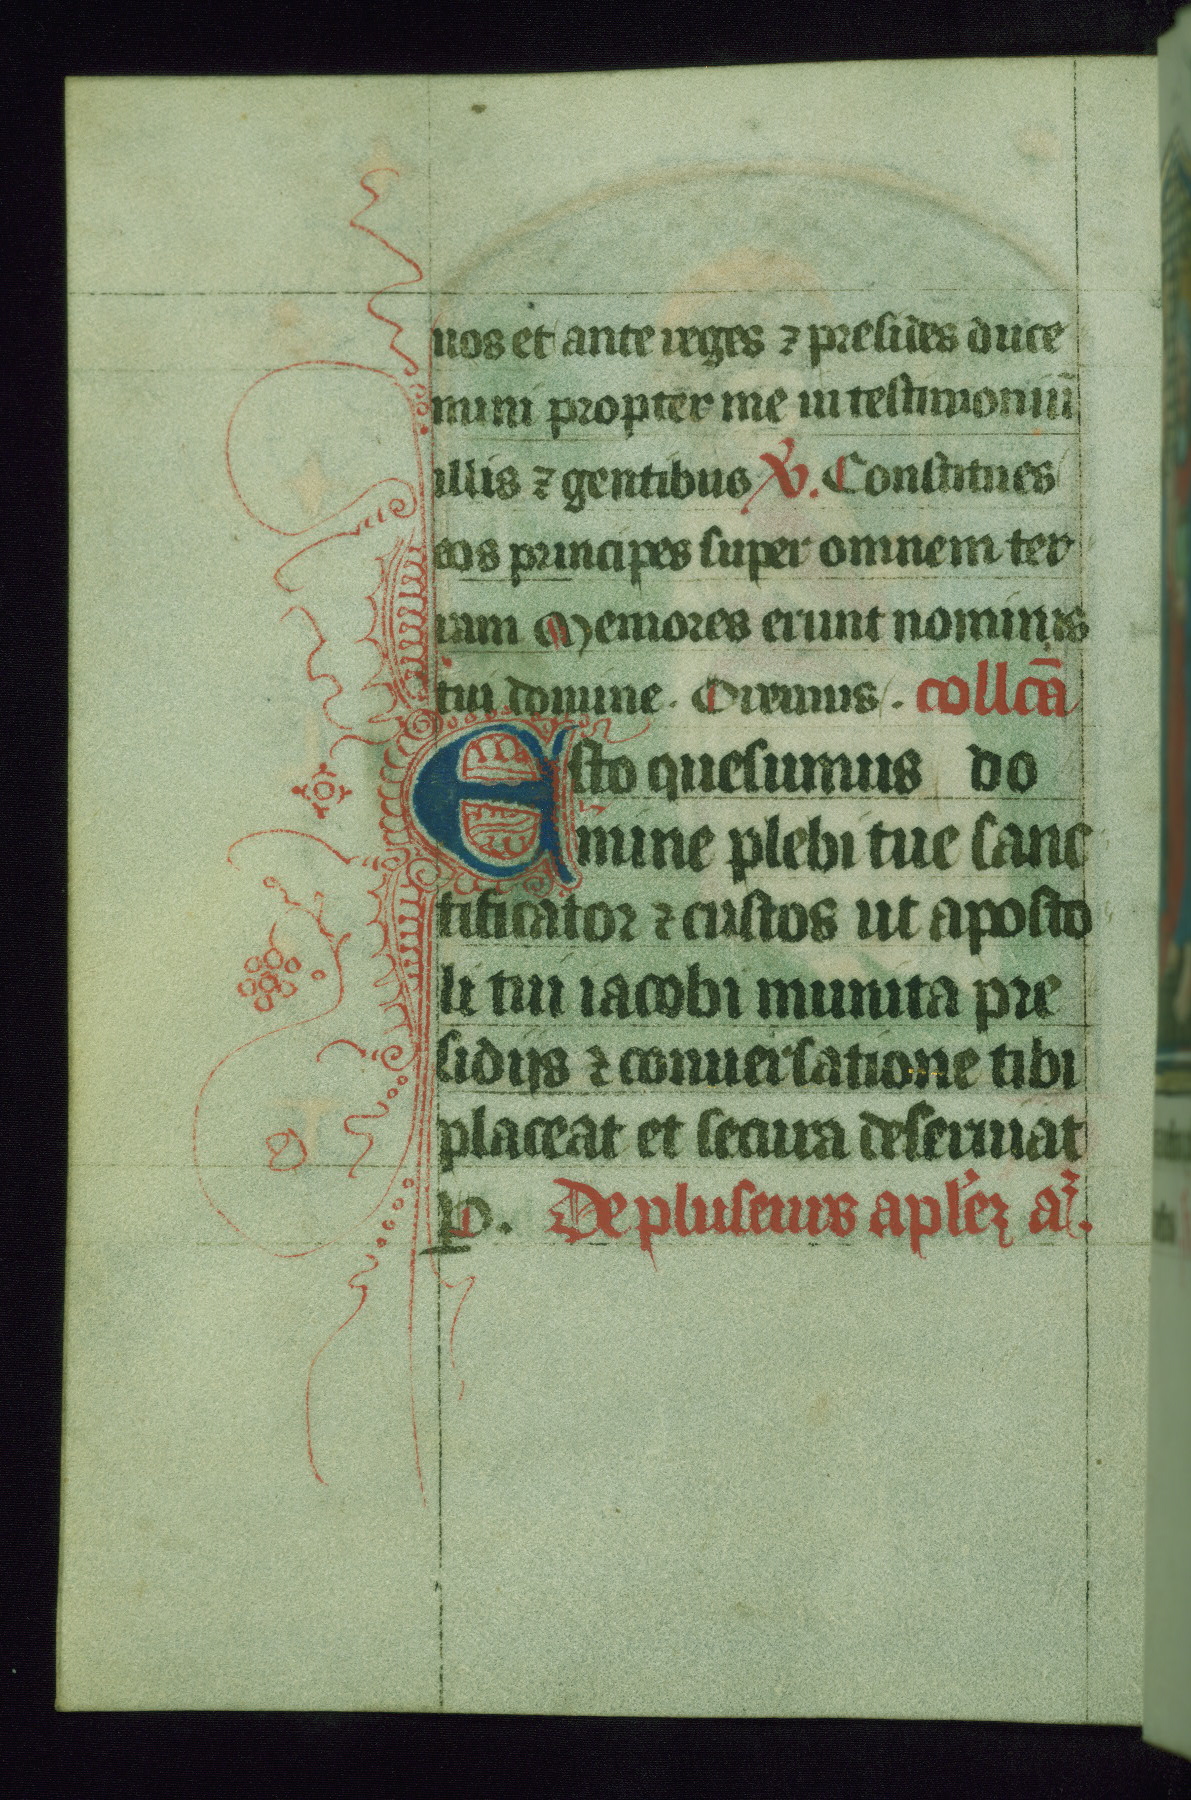 uos et ante reges ⁊ presides duce
mini propter me in testimoniū
illis ⁊ gentibus V̉. Constitues
eos principes super omnem ter
ram Memores erunt nominis
tui domine. Oremus. collcā
Esto quesumus do
mine plebi tue sanc
tificator ⁊ custos ut aposto
li tui iacobi munita pre
sidijs ⁊ conuersatione tibi
placeat et secura deseruiat
P. De pluseurs apl'ez a͛.